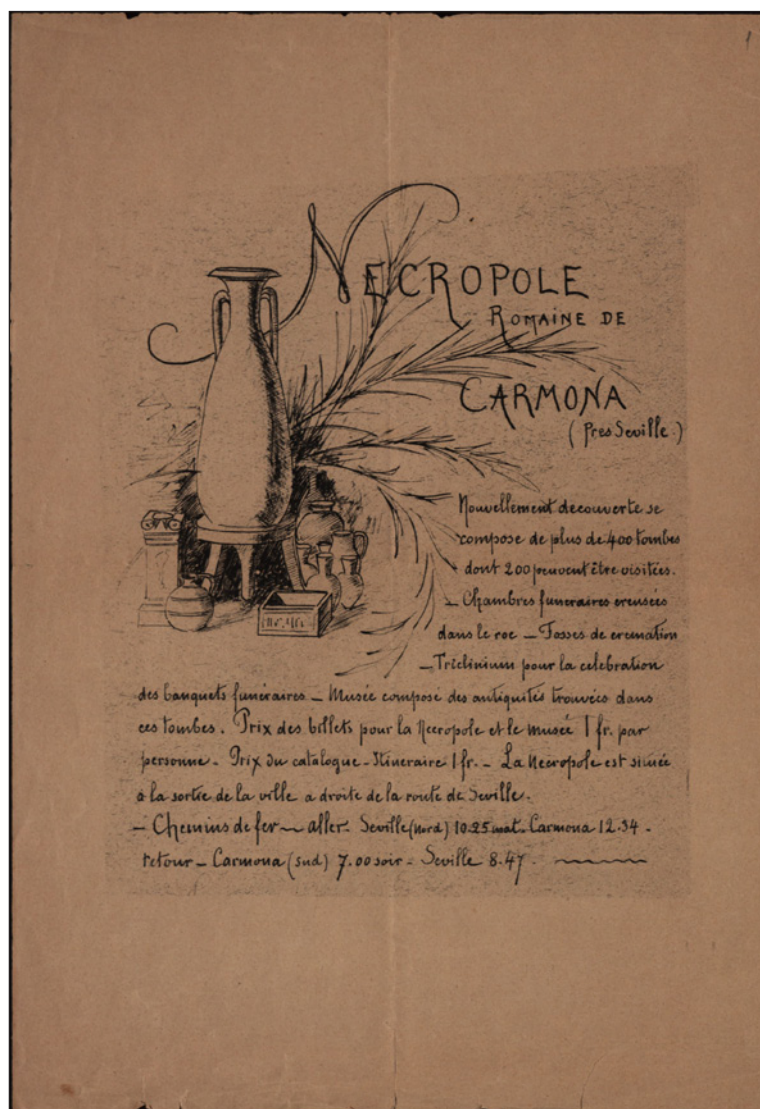 1
NECROPOLE
ROMAINE DE
CARMONA
(Pres Seville.)
Nouvellement decouverte se
compose de plus de 400 tombes
dont 200 peuvent être visitées.
— Chambres funeraires creusées
dans le roc — Fosses de cremation
— Triclinium pour la celebration
des banquets funéraires — Musée compose des antiquités trouvées dans
ces tombes. Prix des billets pour la Necropole et le musée 1 fr. par
personne - Prix du catalogue - Itineraire 1 fr. - La Necropole est située
a la sortie de la ville a droite de la route de Seville.
— Chemins de fer ~ aller - Seville (nord) 10.25 mat. Carmona 12.34 -
retour - Carmona (sud) 7.00 soir - Seville 8.47.